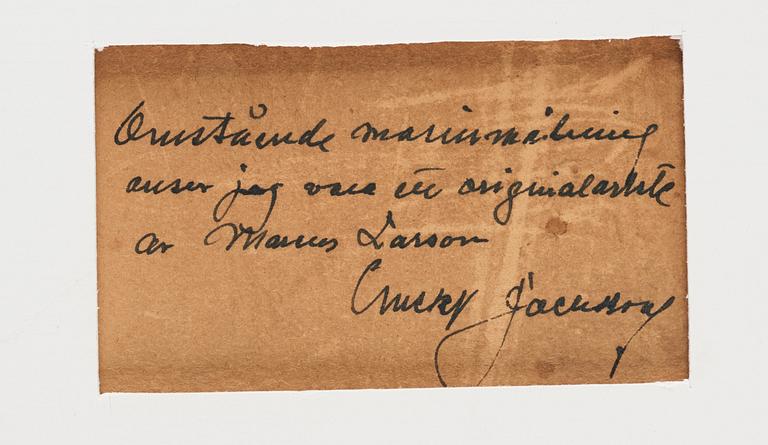 Omstående marinmålning
anser jag vara ett originalarbete
av Marcus Larson